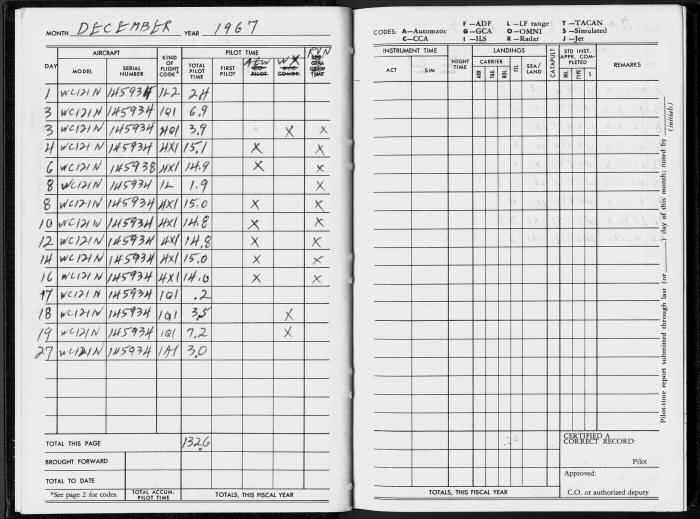 MONTH DECEMBER YEAR 1967
AIRCRAFT PILOT TIME
DAY MODEL SERIAL NUMBER KIND OF FLIGHT CODE* TOTAL PILOT TIME FIRST PILOT AEW CO-PILOT WX RVN
1 WC121N 145934 1L2 2.4
3 WC121N 145934 1Q1 6.9
3 WC121N 145934 3.9 X X
4 WC121N 145934 4X1 15.1 X X
6 WC121N 145938 4X1 14.9 X X
8 WC121N 145934 1L 1.9 X
8 WC121N 145934 4X1 15.0 X X
10 WC121N 145934 4X1 14.8 X X
12 WC121N 145934 4X1 14.8 X X
14 WC121N 145934 4X1 15.0 X X
16 WC121N 145934 4X1 14.0 X X
17 WC121N 145934 1Q1 .2
18 WC121N 145934 1Q1 3.5 X
19 WC121N 145934 1Q1 7.2 X
27 WC121N 145934 1A1 3.0
TOTAL THIS PAGE 132.6
BROUGHT FORWARD
TOTAL TO DATE
*See page 2 for codes. TOTAL ACCUM. PILOT TIME TOTALS, THIS FISCAL YEAR
CODES: A—Automatic C—CCA F—ADF G—GCA I—ILS L—LF range O—OMNI R—Radar T—TACAN S—Simulated J—Jet
INSTRUMENT TIME NIGHT TIME LANDINGS CATAPULT STD INST. APPR. COMPLETED REMARKS
ACT SIM CARRIER ARR. T&G. FCL SEA/LAND NO. TYPE S
Pilot-time report submitted through last (or ) day of this month; noted by (initials)
CERTIFIED A CORRECT RECORD:
Pilot
Approved:
TOTALS, THIS FISCAL YEAR C.O. or authorized deputy